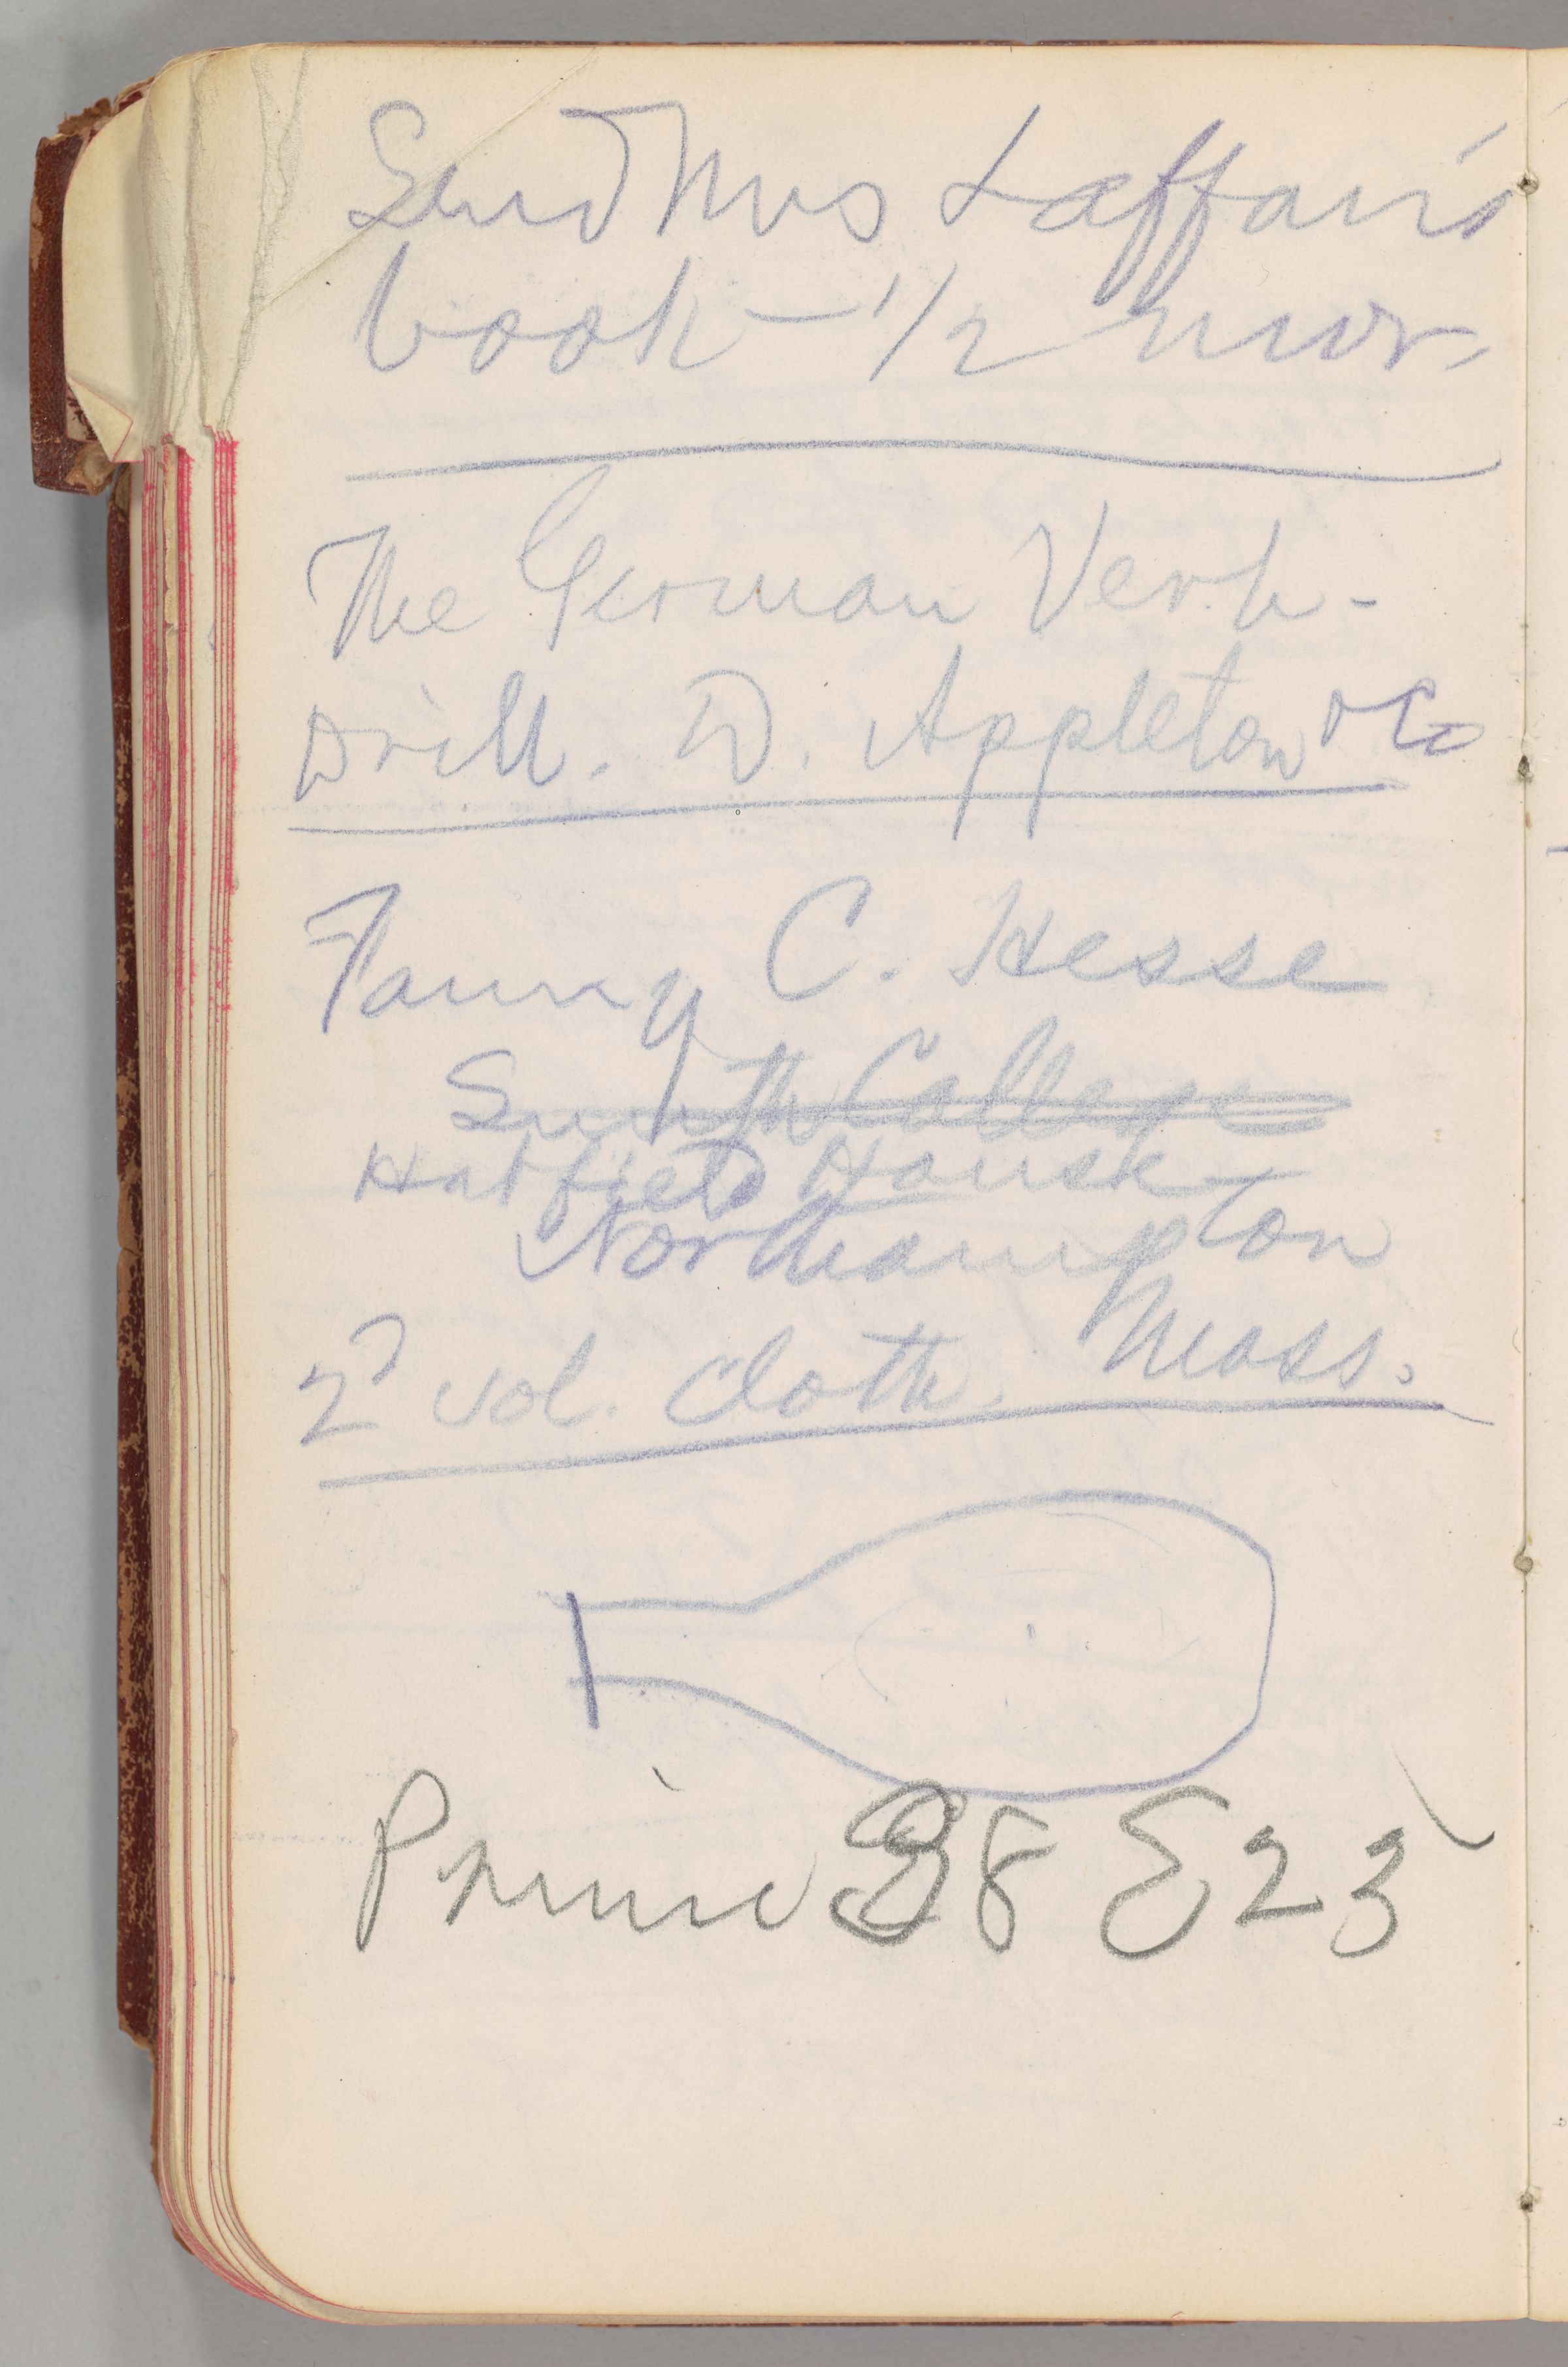 Send Mrs Laffan's
book — 1/2 mor.
The German Verb-
Drill. D. Appleton & Co
Fanny C. Hesse
Smith College
Hatfield House
Northampton
Mass.
2d vol. cloth.
38 E 23